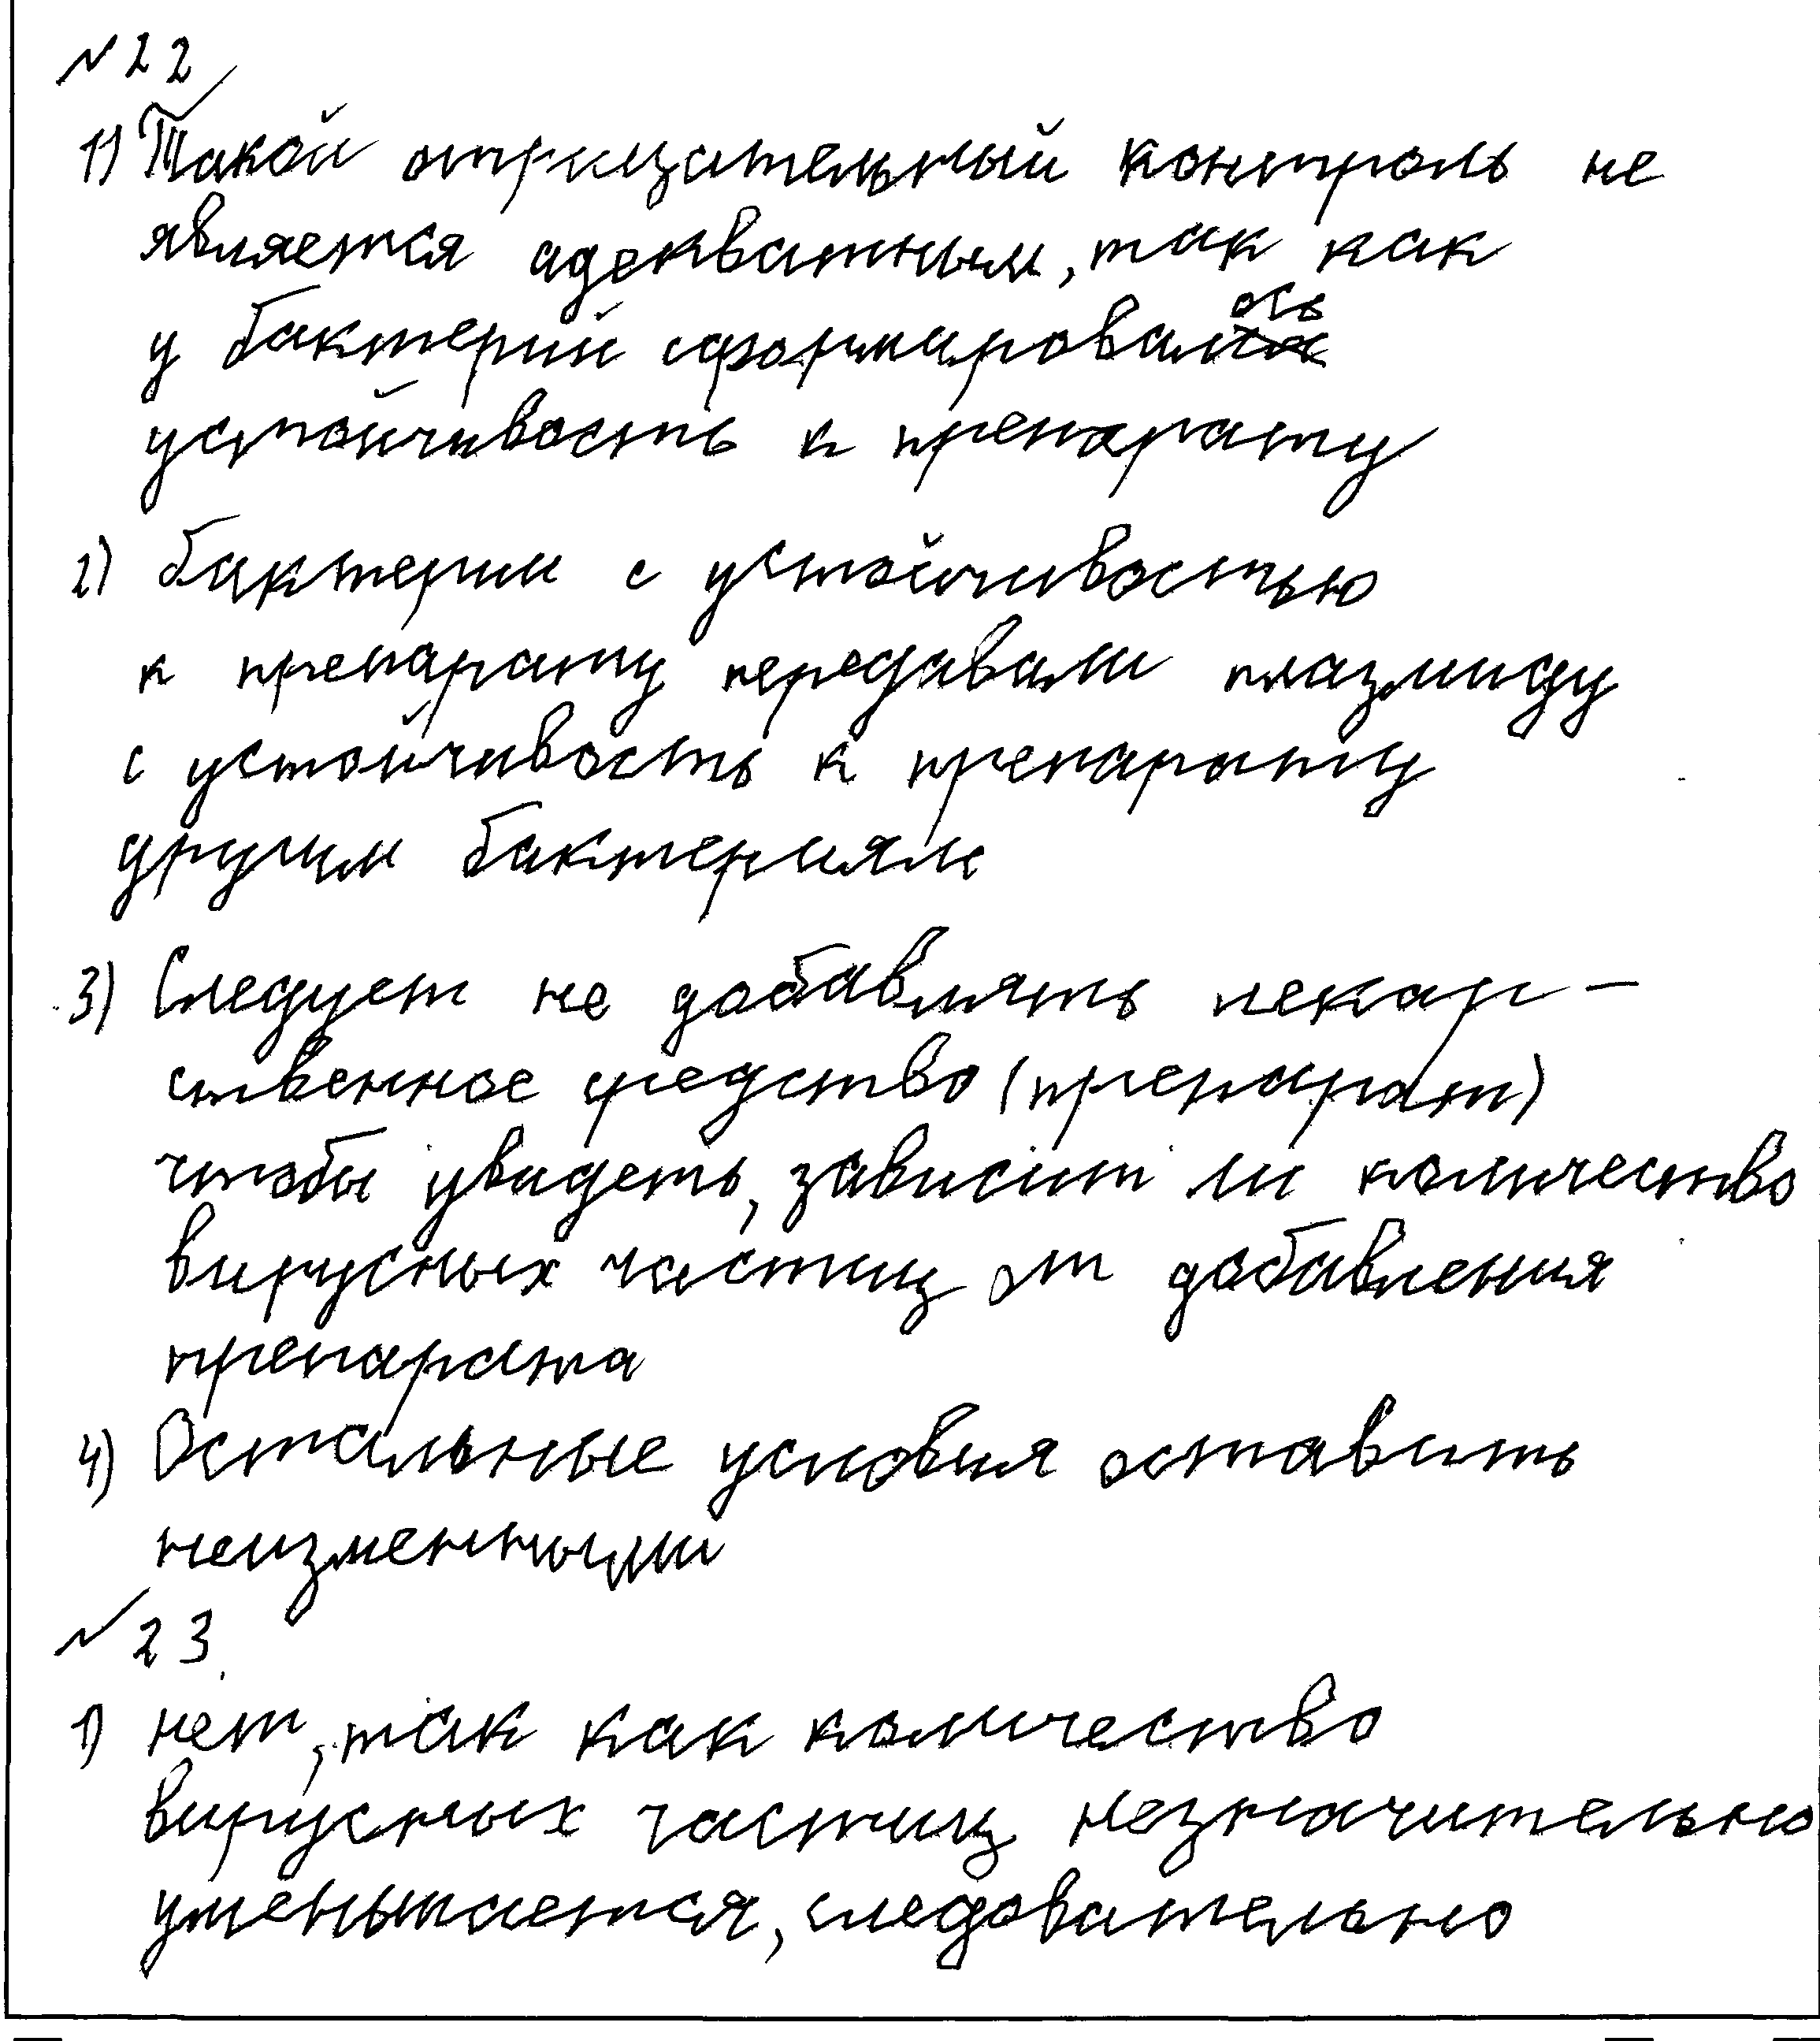 № 22
1) Такой отрицательный контроль не
является адекватным, так как
у бактерий сформировалось
устойчивость к препарату
2) бактерии с устойчивостью
к препарату передавали плазмиду
с устойчивость к препарату
другим бактериям
3) Следует не добавлять лекар-
ственное средство (препарат)
чтобы увидеть, зависит ли количество
вирусных частиц от добавления
препарата
4) Остальные условия оставить
неизменными
№ 23
1) нет, так как количество
вирусных частиц незначительно
уменьшается, следовательно